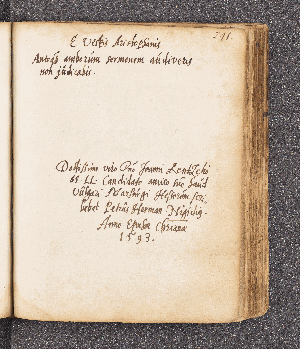 241.
E Vespis Aristophanis
Antequam amborum sermonem audiveris
non judicabis.
Doctissimo viro Dno Joanni
LL. Candidato amico suo haud
vulgari Marpurgi Hessorum scri
bebat Petrus Herman
Anno Epochae Christianae
1593.